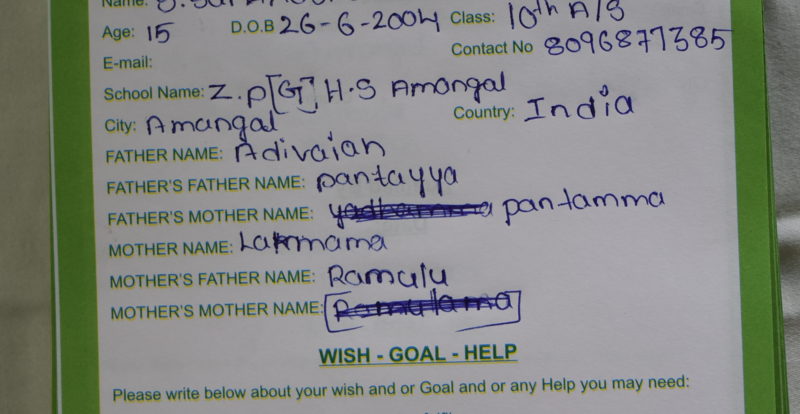 Name:
Age: 15 D.O.B 26-6-2004 Class: 10th A/S
Contact No 8096877385
E-mail:
School Name: Z.P[G].H.S Amangal
City: Amangal Country: India
FATHER NAME: Adivaiah
FATHER'S FATHER NAME: pantayya
FATHER'S MOTHER NAME: pantamma
MOTHER NAME:
MOTHER'S FATHER NAME: Ramulu
MOTHER'S MOTHER NAME:
WISH - GOAL - HELP
Please write below about your wish and or Goal and or any Help you may need: